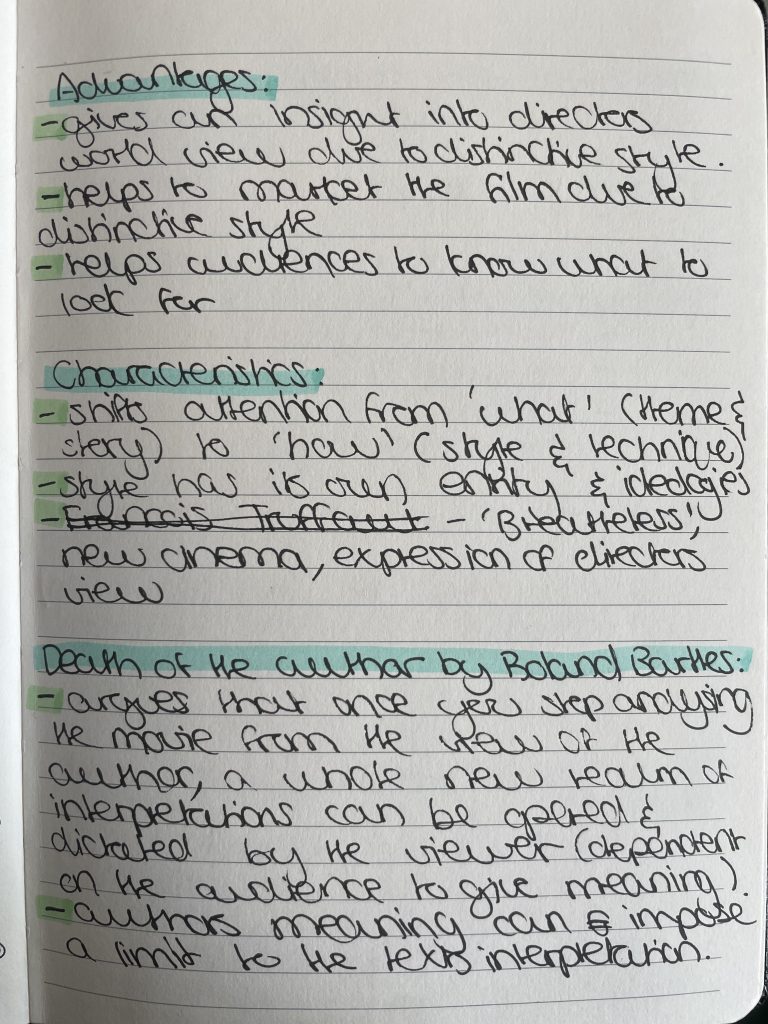 Advantages:
- gives an insight into directors
world view due to distinctive style.
- helps to market the film due to
distinctive style
- helps audiences to know what to
look for
Characteristics:
- shifts attention from 'what' (theme &
story) to 'how' (style & technique)
- style has its own entity & ideologies
- Francois Truffaut - 'Breathless',
new cinema, expression of directors
view
Death of the author by Roland Barthes:
- argues that once you stop analysing
the movie from the view of the
author, a whole new realm of
interpretations can be opened &
dictated by the viewer (dependent
on the audience to give meaning).
- authors meaning can impose
a limit to the texts interpretation.